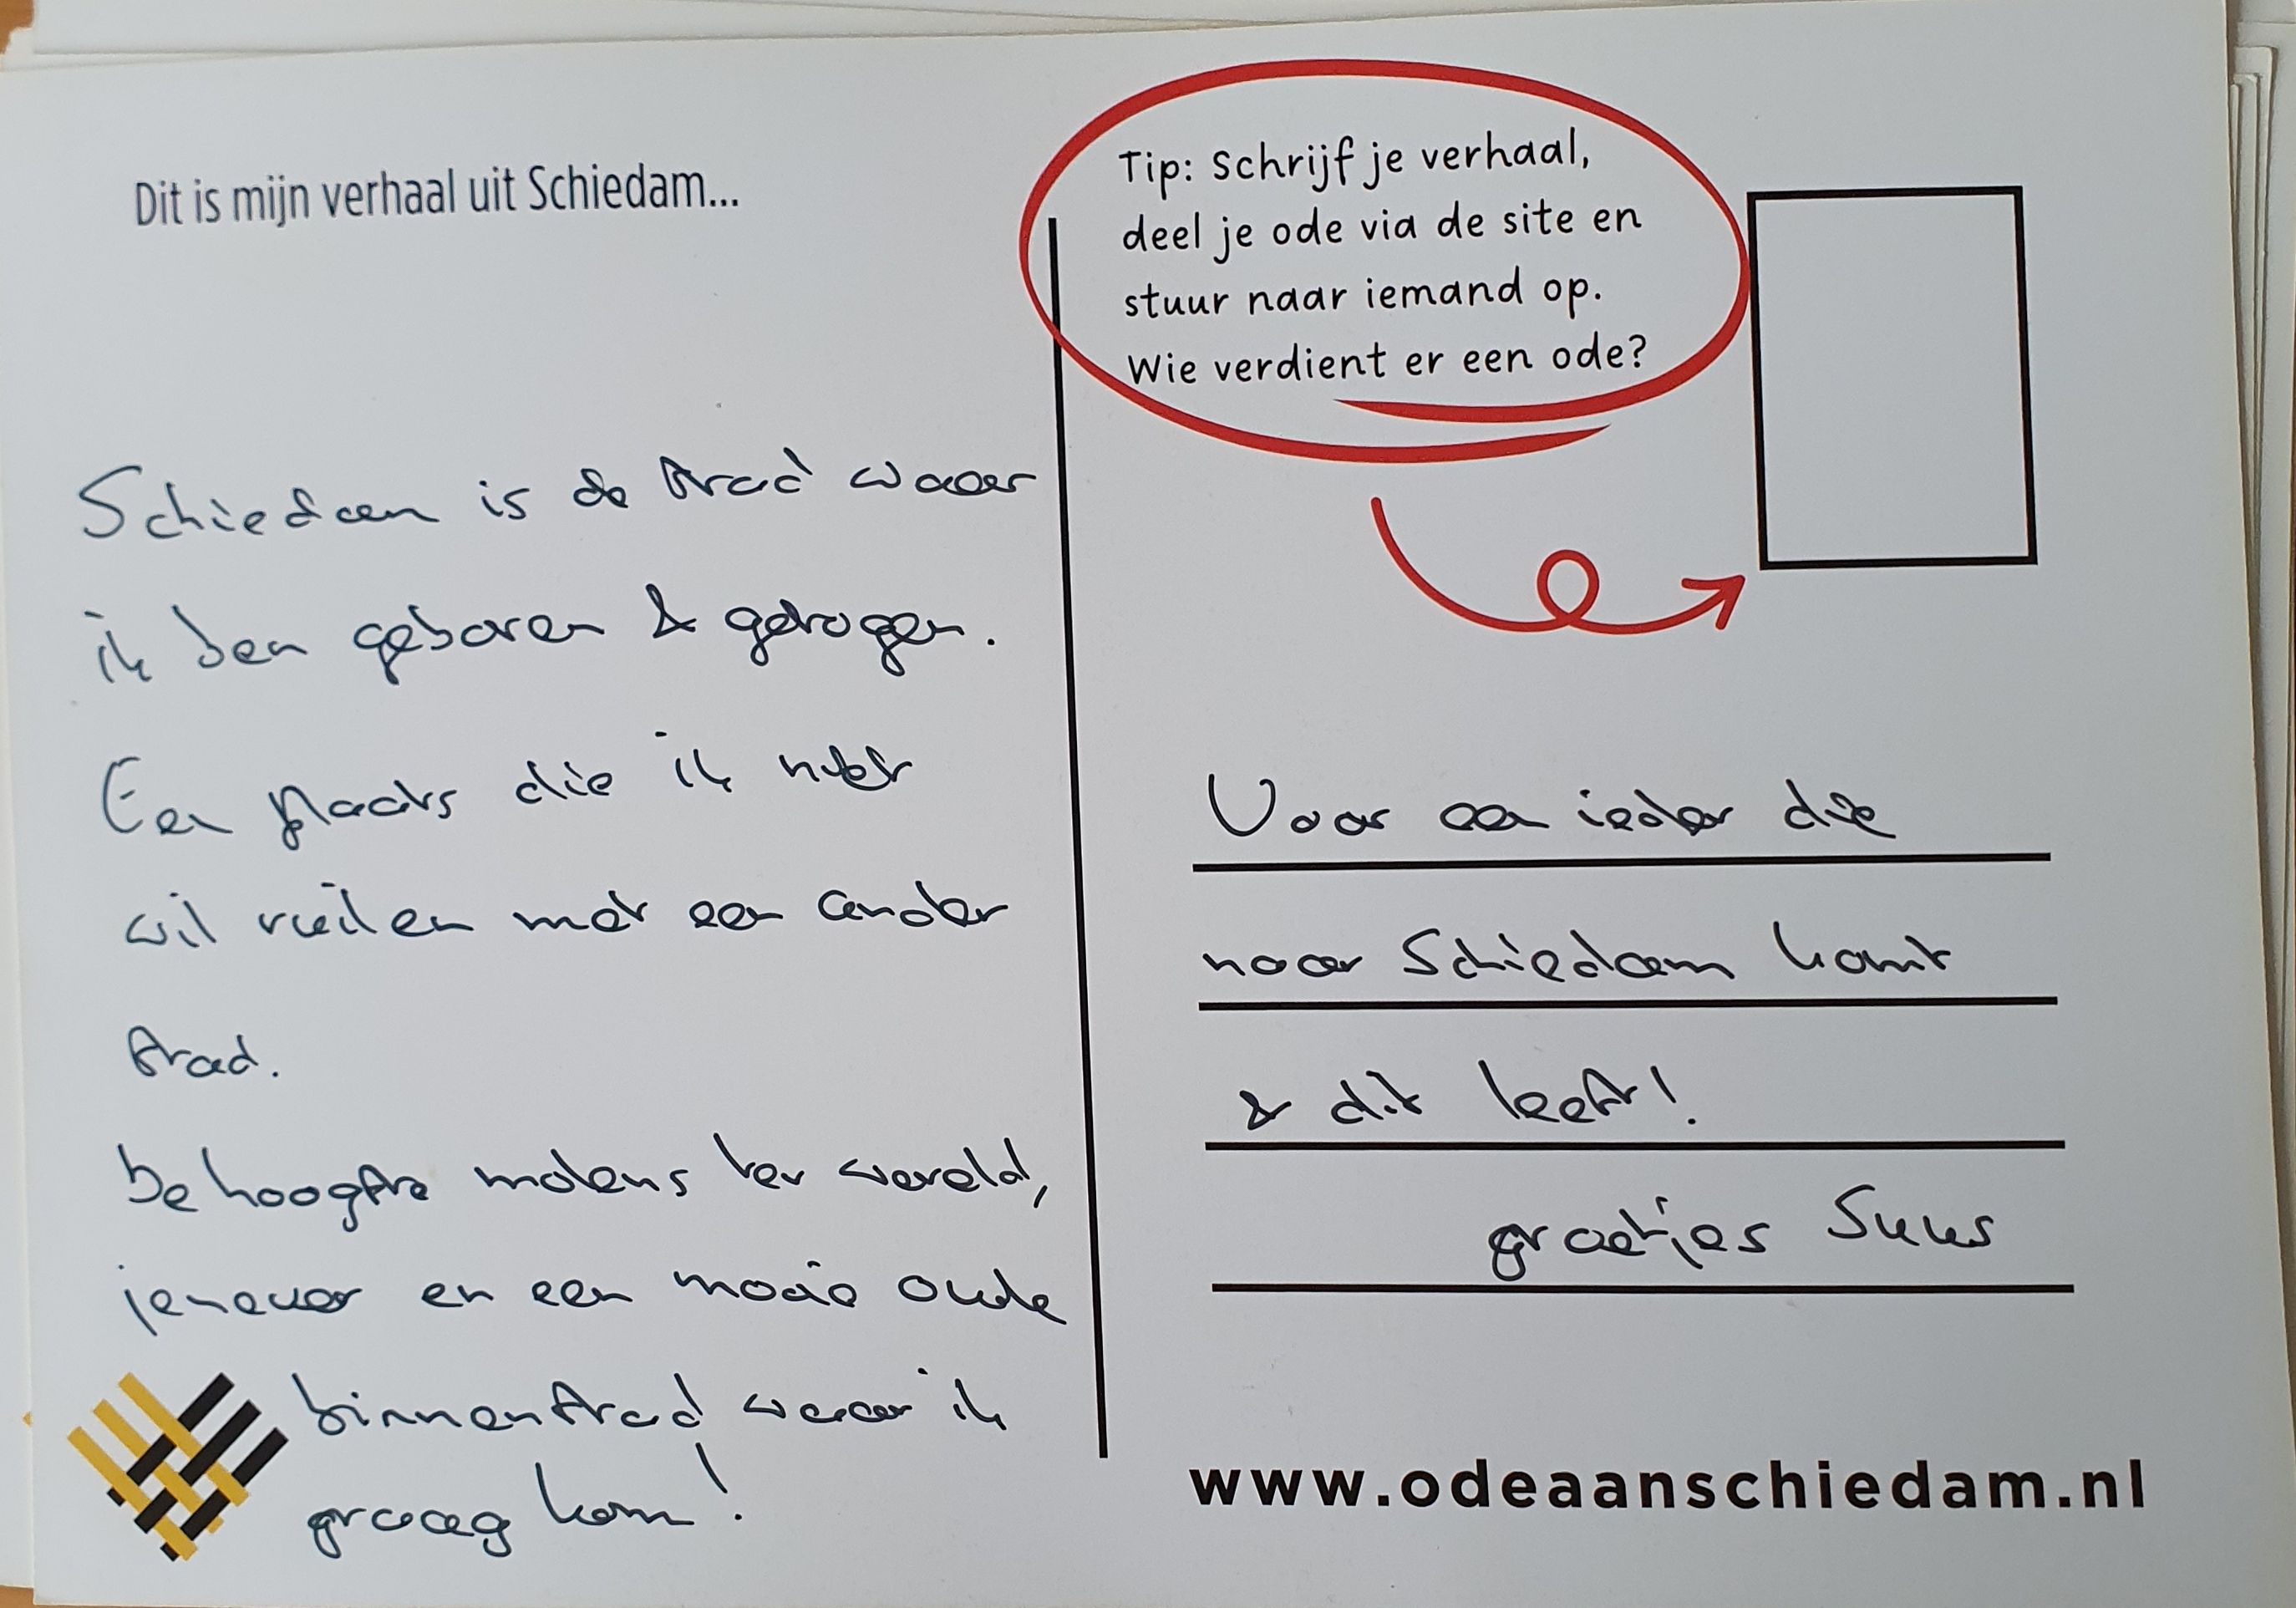 Dit is mijn verhaal uit Schiedam...
Schiedam is de stad waar
ik ben geboren & getogen.
Een plaats die ik niet
wil ruilen met een ander
stad.
De hoogste molens ter wereld,
jenever en een mooie oude
binnenstad waar ik
graag kom!
Tip: Schrijf je verhaal,
deel je ode via de site en
stuur naar iemand op.
Wie verdient er een ode?
Voor een ieder die
naar Schiedam komt
& dit leest!
groetjes Suus
www.odeaanschiedam.nl